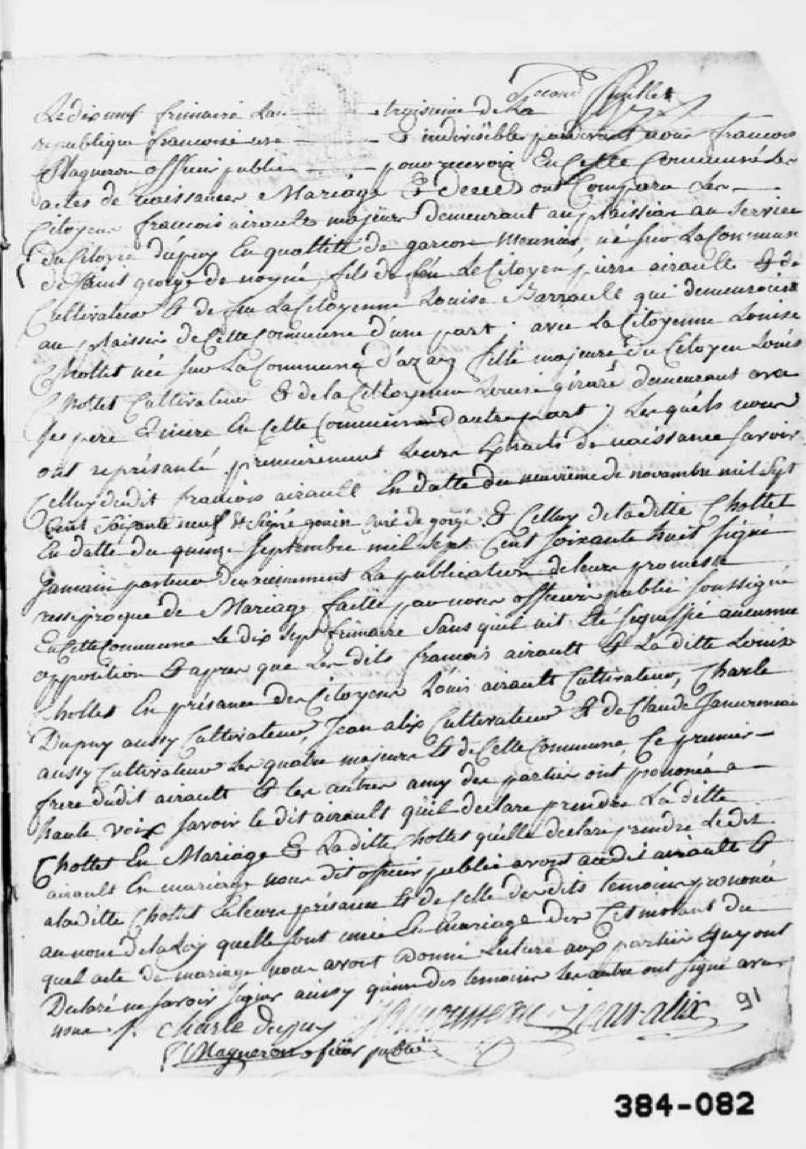 Second feuillet
Le dix neuf frimaire L'an troisieme de La
republique francoise une & indivisible pardevant nous francois
Magneron officier public pour recevoir En Cette Commune Les
actes de naissances Mariage & deces ont Comparu Les
Citoyens francois airault majeur demeurant au plaissier au service
du Citoyen dupuy En quallitté de garcon Meunier, né sur La Commune
de saint george de noyné, fils de feu Le Citoyen pierre airault &
Cultivateur & de feu La Citoyenne Louise Barrault qui demeuroient
au plaissis de Cette Commune d'une part ; avec La Citoyenne Louise
Chollet née sur La Commune d'azay fille majeure du Citoyen Louis
Chollet Cultivateur & de la Cittoyenne Louise giraré demeurant avec
ses pere & mere En Cette Commune d'autre part ; Les quels nous
ont représanté premierement Leurs Extraits de naissance savoir
Celluy dudit francois airault En datte du neuvieme de novembre mil sept
Cent soixante neuf & signé gouin curé de gorge & Celluy de laditte Chollet
En datte du quinze septembre mil sept Cent soixante huit signé
Jamain La publication de leurs promesse
ressiproque de Mariage faitte par nous officier public soussigné
En Cette Commune Le dix sept frimaire sans quil ait Eté signiffié aucunne
opposition & apres que Les dits francois airault & La ditte Louise
Chollet En présance des Citoyens Louis airault Cultivateur, Charle
Dupuy aussy Cultivateur, Jean alix Cultivateur & de Claude
aussy Cultivateur Les quatre majeurs & de Cette Commune, Ce premier
frere dudit airault & les autres amy des parties ont prononcé a
haute voix savoir le dit airault quil declare prendre La ditte
Chollet En Mariage & La ditte Chollet quelle declare prendre Ledit
airault En mariage nous dit officier public avons audit airault &
aladitte Chollet En leurs présance & de Celle des dits temoins prononcé
au nom de la Loy quelle sont unie En Mariage du
quel acte de mariage nous avons Donné Lecture aux parties quy ont
Declaré ne savoir signer ainsy quun des temoins Les autre ont signé avec
nous. Charle dupuy jean alix
Magneron officier public
91
384-082